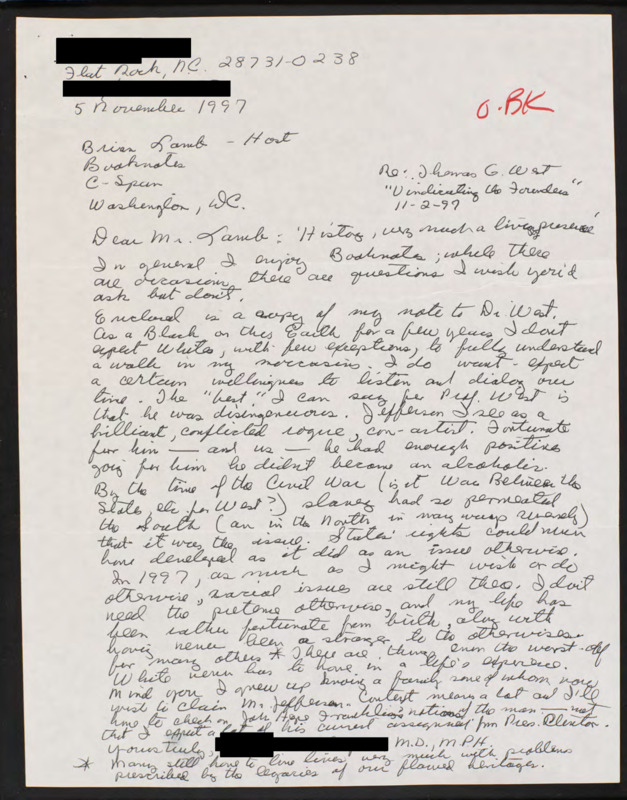 Flat Rock, N.C. 28731-0238
5 November 1997
O.BK
Brian Lamb - Host
Booknotes
C-Span
Washington, D.C.
Re: Thomas G. West
"Vindicating the Founders"
11-2-97
Dear Mr. Lamb: "History, very much a living presence"
In general I enjoy Booknotes; while there
are occasions there are questions I wish you'd
ask but don't.
Enclosed is a copy of my note to Dr. West.
As a Black on this Earth for a few years I don't
expect Whites, with few exceptions, to fully understand
a walk in my moccasins. I do want expect
a certain willingness to listen and dialog over
time. The "best" I can say for Prof. West is
that he was disingenuous. Jefferson I see as a
brilliant, conflicted rogue, con-artist. Fortunate
for him — and us — he had enough positive
going for him he didn't become an alcoholic.
By the time of the Civil War (is it War Between the
States, etc. for West?) slavery had so permeated
the South (an in the North, in many ways)
that it was the issue. States' rights could never
have developed as it did as an issue otherwise.
In 1997, as much as I might wish or do
otherwise, racial issues are still there. I don't
need the pretense otherwise, and my life has
been rather fortunate from birth, along with
having never been a stranger to the otherwises
for many others * There are things even the worst-off
White never has to have in a life's experience.
Mind you I grew up knowing a family some of whom now
wish to claim Mr. Jefferson. Context means a lot and I'll
have to check on John Hope Franklin's notions of the man — not
that I expect a lot of his current assignment from Pres. Clinton.
Yours truly, M.D., MPH
* Many still have to live lives very much with problems
prescribed by the legacies of our flawed heritages.